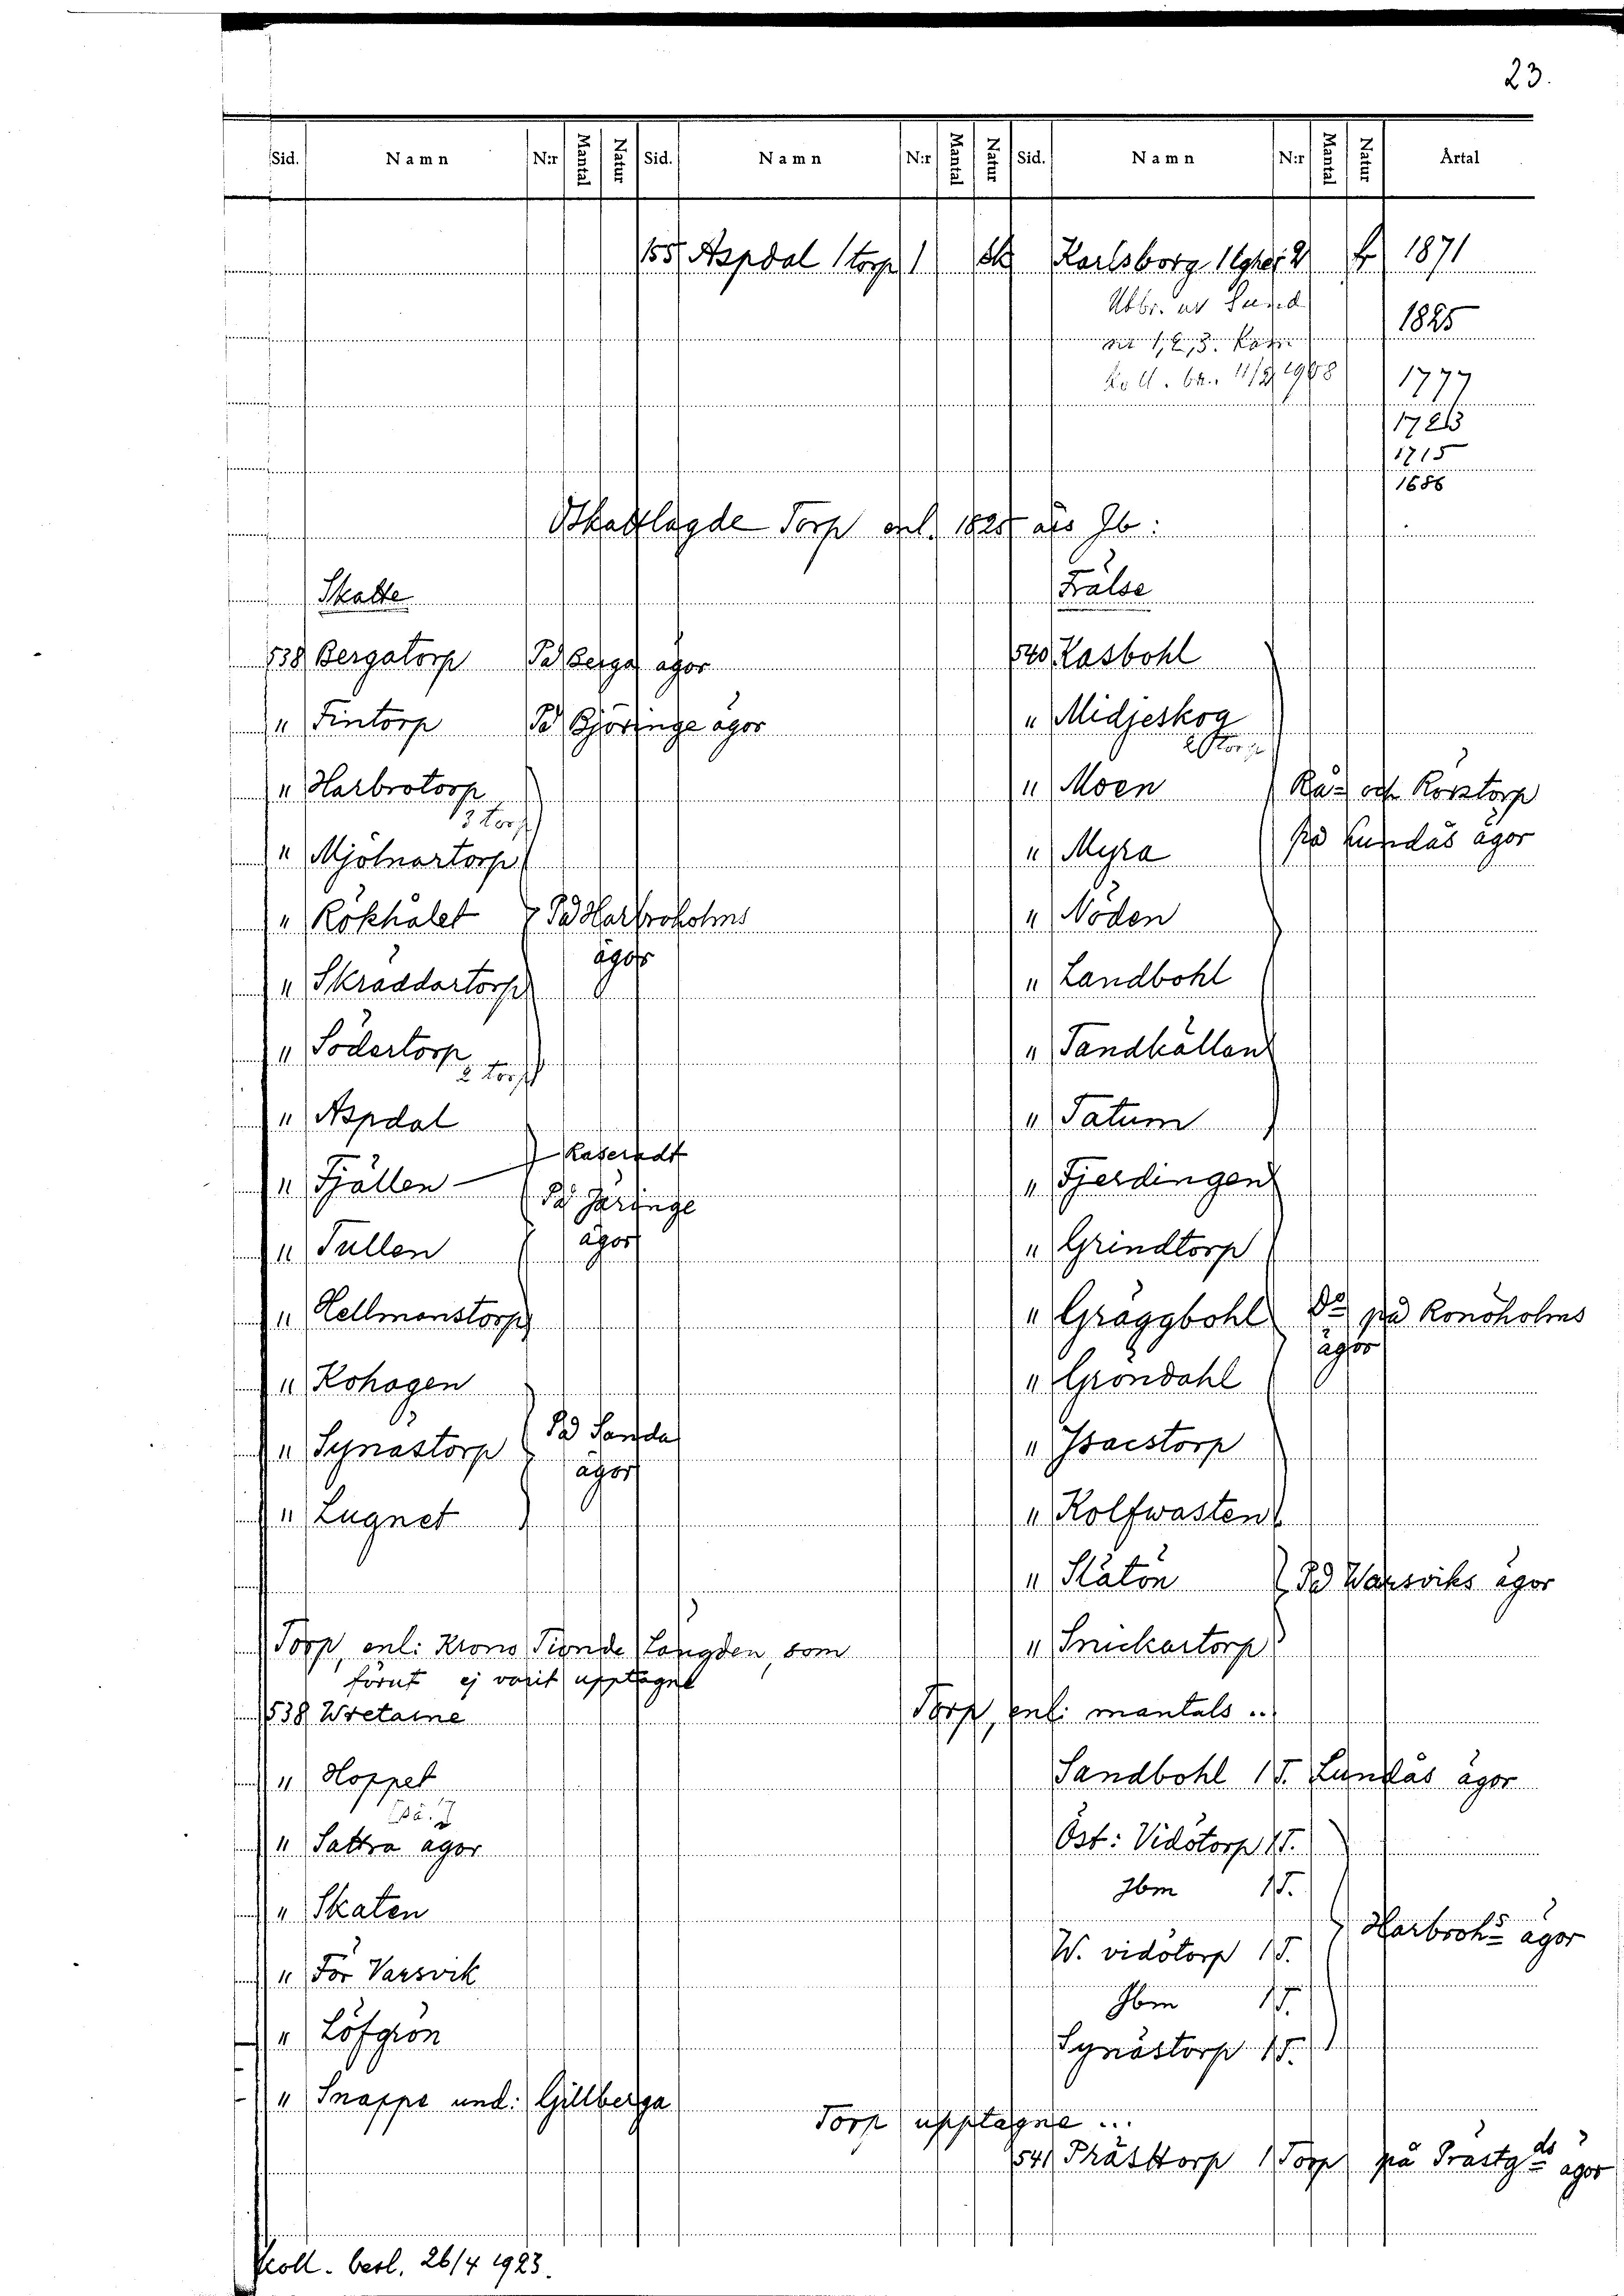 23.
Sid. Namn N:r Mantal Natur Sid. Namn N:r Mantal Natur Sid. Namn N:r Mantal Natur Årtal
155 Aspdal 1 torp 1 Sk Karlsborg 1 lghet 2 fr 1871
Utbr. ur Lund
1825
nr 1, 2, 3.
1777
1715
1686
Oskattlagde Torp enl. 1825 års Jb:
Skatte
Frälse
538 Bergatorp På Berga ägor
540 Kasbohl
" Fintorp På Björinge ägor
" Midjeskog
2 torp
" Harbrotorp
3 torp
" Moen Rå- och Rörstorp
" Mjölnartorp
" Myra på Lundås ägor
" Rökhålet På Harbroholms
ägor
" Nöden
" Skräddartorp
" Landbohl
" Södertorp
2 torp
" Tandkällan
" Aspdal
" Tatum
" Fjällen Raseradt
På Järinge
ägor
" Fjerdingen
" Tullen
" Grindtorp
" Hellmanstorp
" Gräggbohl Do på Ronöholms
ägor
" Kohagen
" Gröndahl
" Synästorp På Sanda
ägor
" Isacstorp
" Lugnet
" Kolfwasten
" Slätön På Warsviks ägor
Torp, enl: Krono Tionde Längden, som
förut ej varit upptagne
" Snickartorp
538 Wretarne
Torp, enl: mantals ..
" Hoppet
Sandbohl 1 T. Lundås ägor
[på.]
" Sättra ägor
Öst: Vidötorp 1 T.
Ibm 1 T.
" Skaten
Harbrohs ägor
W. vidötorp 1 T.
" För Varsvik
Ibm 1 T.
" Löfgrön
Synästorp 1 T.
" Snapps und: Gillberga
Torp upptagne ...
541 Prästtorp 1 Torp på Prästgds ägor
Koll. besl. 26/4 1923.